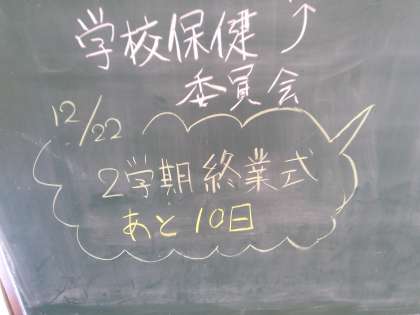 学校保健
委員会
12/22
2学期終業式
あと10日